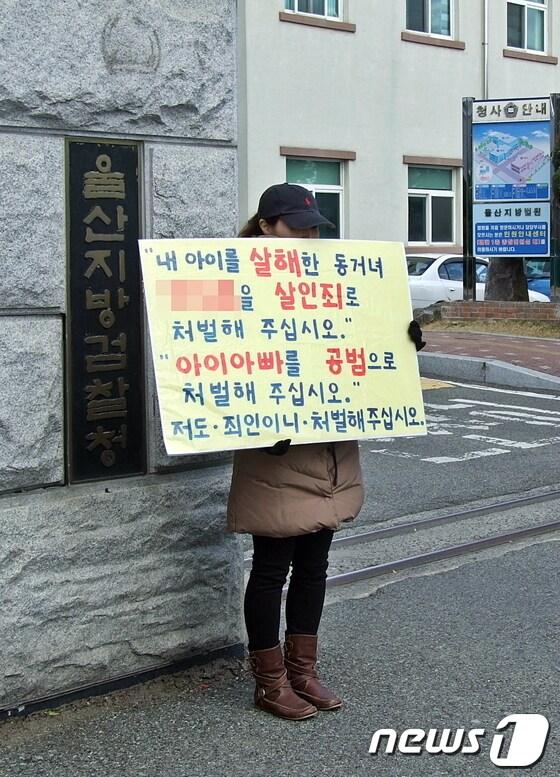 울산지방검찰청
"내 아이를 살해한 동거녀
을 살인죄로
처벌해 주십시오."
"아이아빠를 공범으로
처벌해 주십시오."
저도·죄인이니·처벌해주십시오.
청사 안내
울산지방법원
민원안내센터
news1